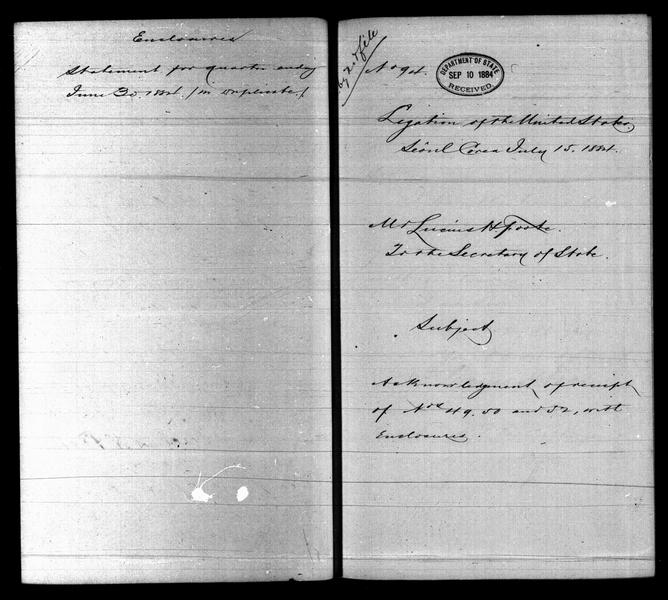 Enclosures
Statement for quarter ending
June 30. 1884. (in duplicate)
No 94.
DEPARTMENT OF STATE
SEP 10 1884
RECEIVED
Legation of the United States.
Séoul Corea July 15. 1884.
Mr Lucius H Foote.
To the Secretary of State.
Subject
Acknowledgment of receipt
of Nos 49. 50 and 52, with
Enclosures.